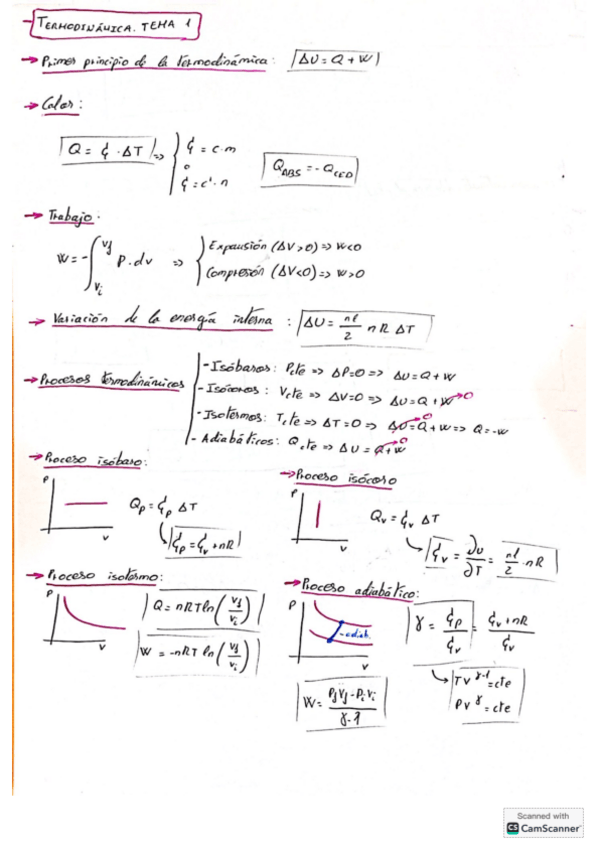 TERMODINÁMICA. TEMA 1
→ Primer principio de la termodinámica: ΔU = Q + W
→ Calor:
Q = C · ΔT => { C = c·m
o
C = c'·n
Q_ABS = -Q_CED
→ Trabajo:
W = -∫_{Vi}^{Vf} P·dv => { Expansión (ΔV>0) => W<0
Compresión (ΔV<0) => W>0
→ Variación de la energía interna: ΔU = nl/2 nR ΔT
→ Procesos termodinámicos
- Isóbaros: P cte => ΔP=0 => ΔU=Q+W
- Isócoros: V cte => ΔV=0 => ΔU=Q+W→0
- Isotermos: T cte => ΔT=0 => ΔU→0=Q+W => Q=-W
- Adiabáticos: Q cte => ΔU=Q→0+W
→ Proceso isóbaro:
P
V
Q_p = C_p ΔT
C_p = C_v + nR
→ Proceso isócoro
P
V
Q_v = C_v ΔT
C_v = ∂U/∂T = nl/2 · nR
→ Proceso isotermo:
P
V
Q = nRT ln(Vf/Vi)
W = -nRT ln(Vf/Vi)
→ Proceso adiabático:
P
V
adiab.
γ = C_p/C_v = (C_v + nR)/C_v
TV^{γ-1} = cte
PV^γ = cte
W = (Pf Vf - Pi Vi)/(γ-1)
Scanned with
CS CamScanner